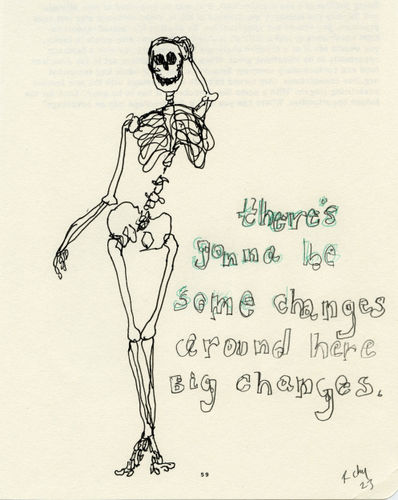 there's
gonna be
some changes
around here
BIG changes.
59
23